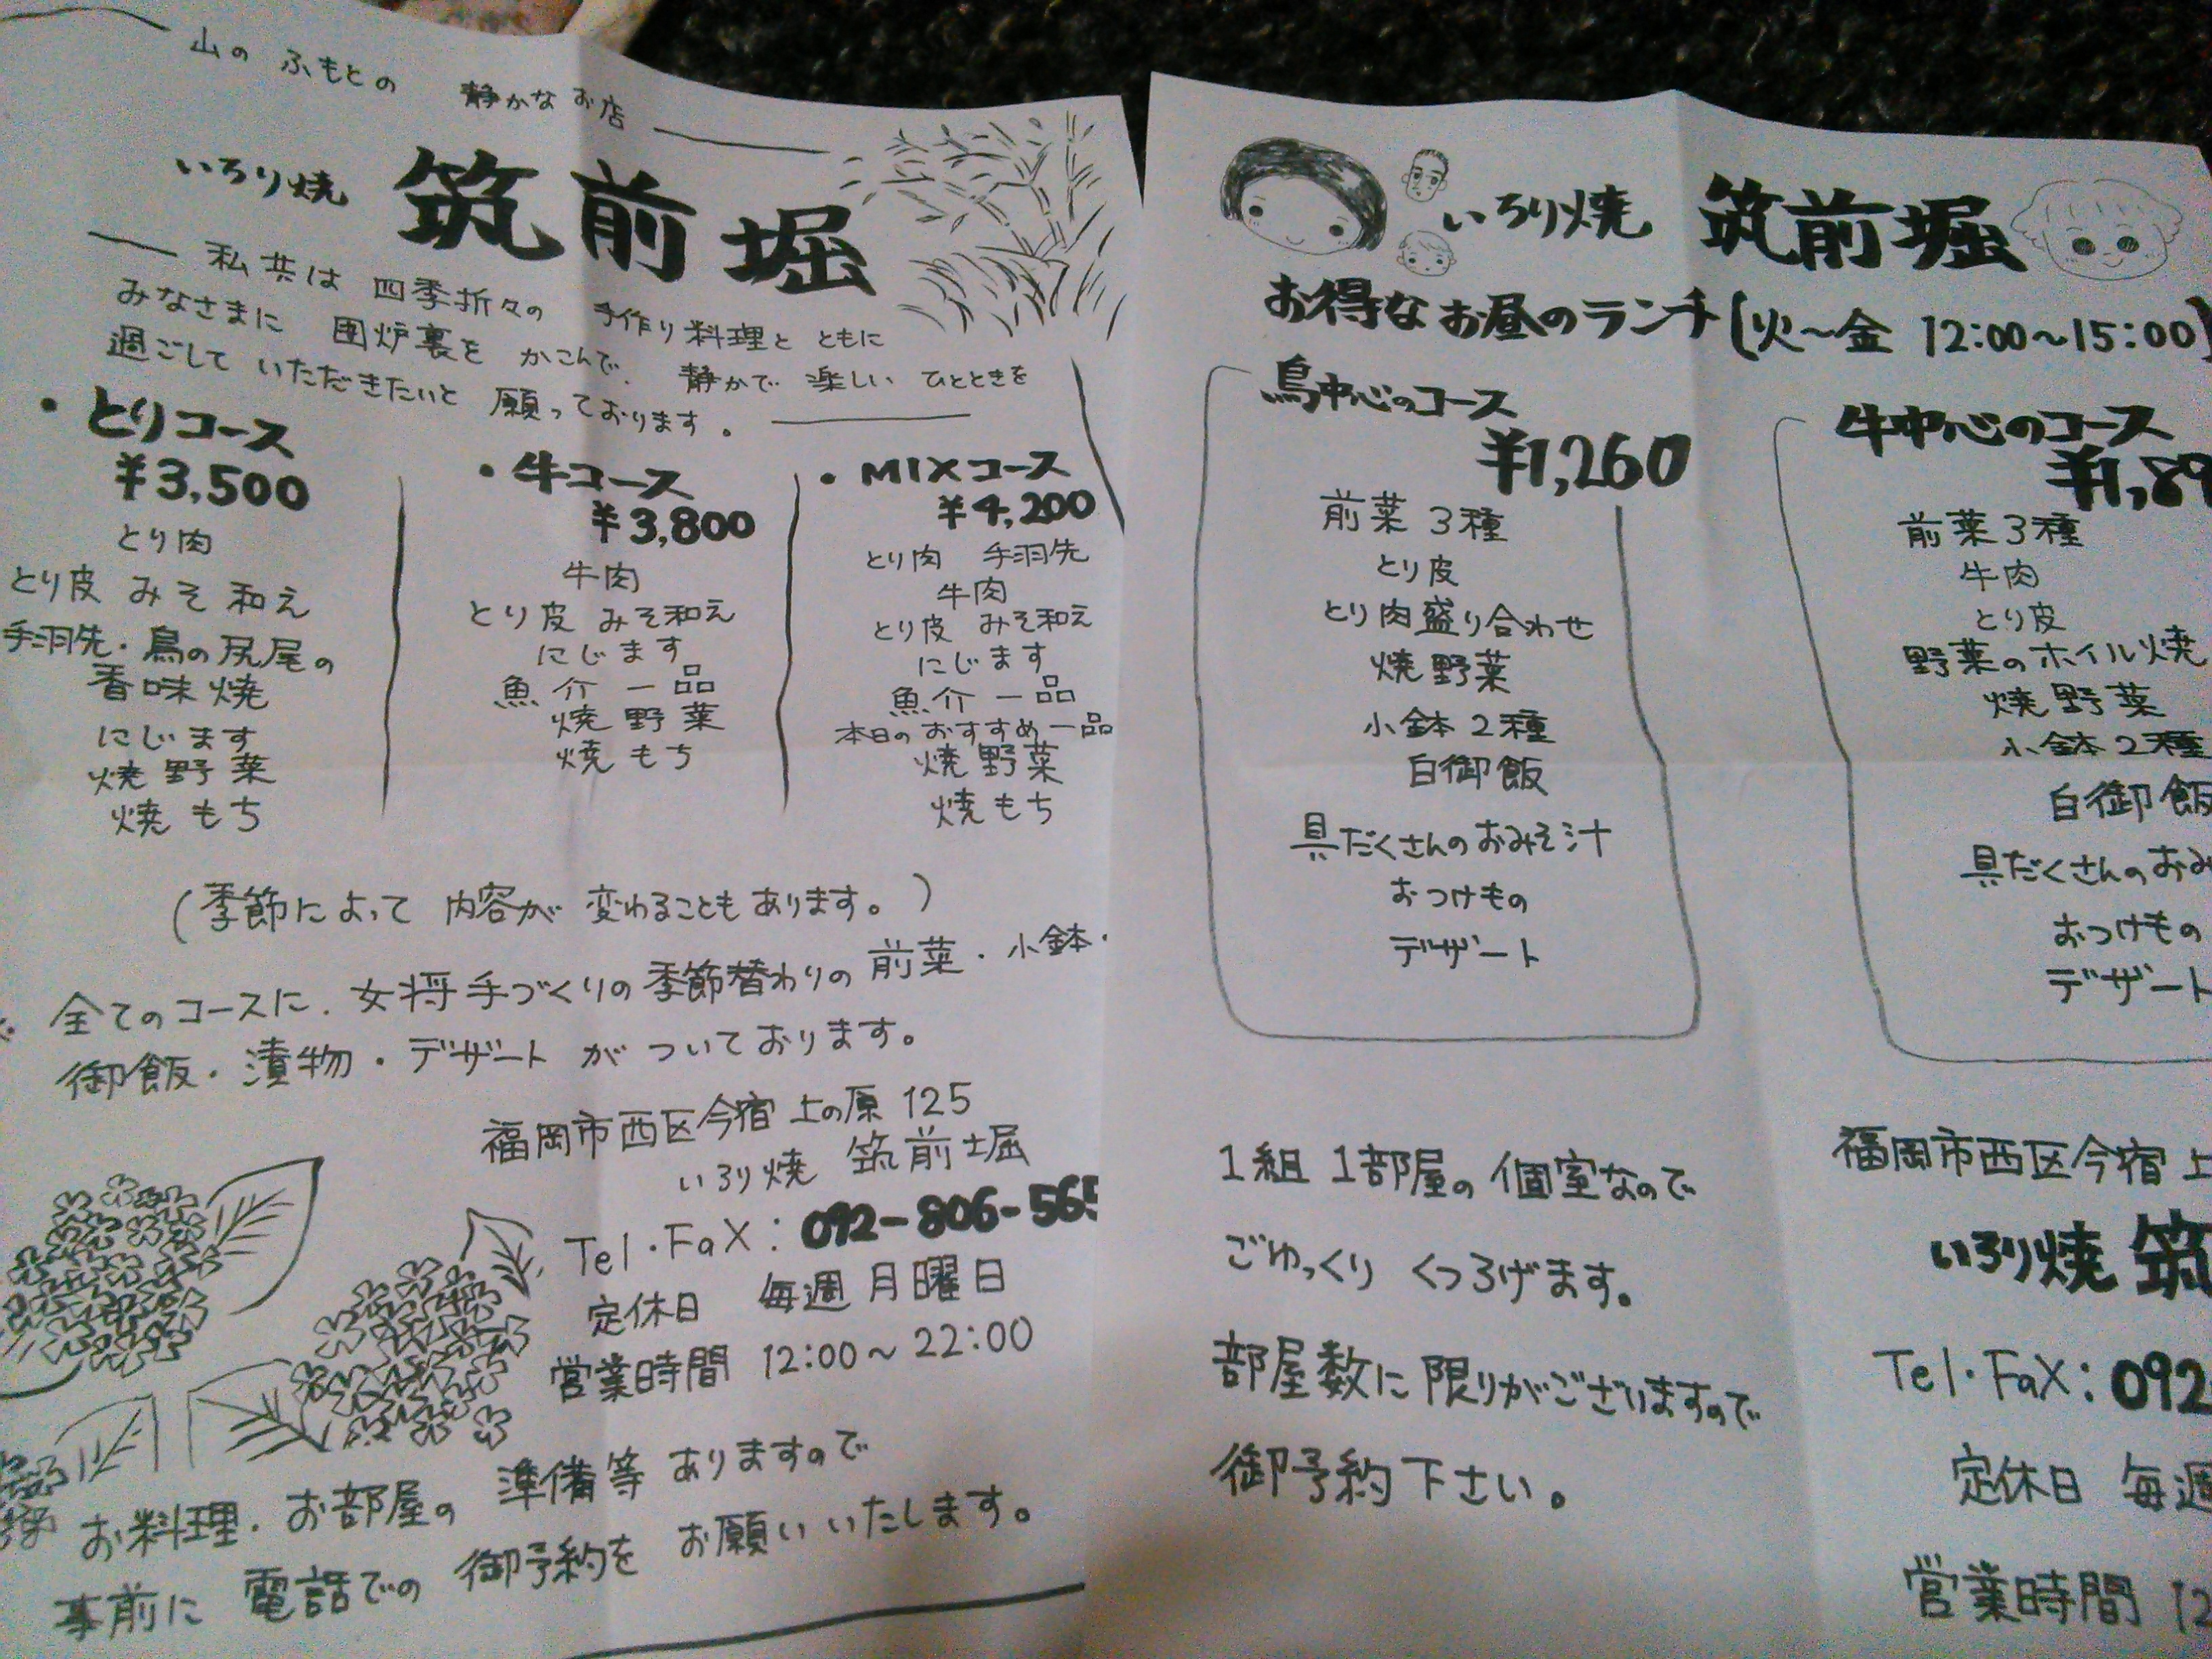 山の ふもとの 静かな お店
いろり焼 筑前堀
私共は 四季折々の 手作り料理と ともに
みなさまに 囲炉裏を かこんで、静かで 楽しい ひとときを
過ごして いただきたいと 願っております。
・とりコース
¥3,500
とり肉
とり皮 みそ和え
手羽先・鳥の尻尾の
香味焼
にじます
焼野菜
焼もち
・牛コース
¥3,800
牛肉
とり皮 みそ和え
にじます
魚介一品
焼野菜
焼もち
・MIXコース
¥4,200
とり肉 手羽先
牛肉
とり皮 みそ和え
にじます
魚介一品
本日のおすすめ一品
焼野菜
焼もち
(季節によって 内容が 変わることもあります。)
全てのコースに、女将手づくりの季節替わりの前菜・小鉢・
御飯・漬物・デザートが ついております。
福岡市西区今宿上の原125
いろり焼 筑前堀
Tel・FaX:092-806-565
定休日 毎週月曜日
営業時間 12:00〜22:00
お料理・お部屋の 準備等 ありますので
事前に 電話での 御予約を お願いいたします。
いろり焼 筑前堀
お得なお昼のランチ(火〜金 12:00〜15:00)
鳥中心のコース
¥1,260
前菜3種
とり皮
とり肉盛り合わせ
焼野菜
小鉢2種
白御飯
具だくさんのおみそ汁
おつけもの
デザート
牛中心のコース
¥1,89
前菜3種
牛肉
とり皮
野菜のホイル焼
焼野菜
小鉢2種
白御飯
具だくさんのおみ
おつけもの
デザート
1組1部屋の個室なので
ごゆっくり くつろげます。
部屋数に限りがございますので
御予約下さい。
福岡市西区今宿上
いろり焼 筑
Tel・FaX:092
定休日 毎週
営業時間 12